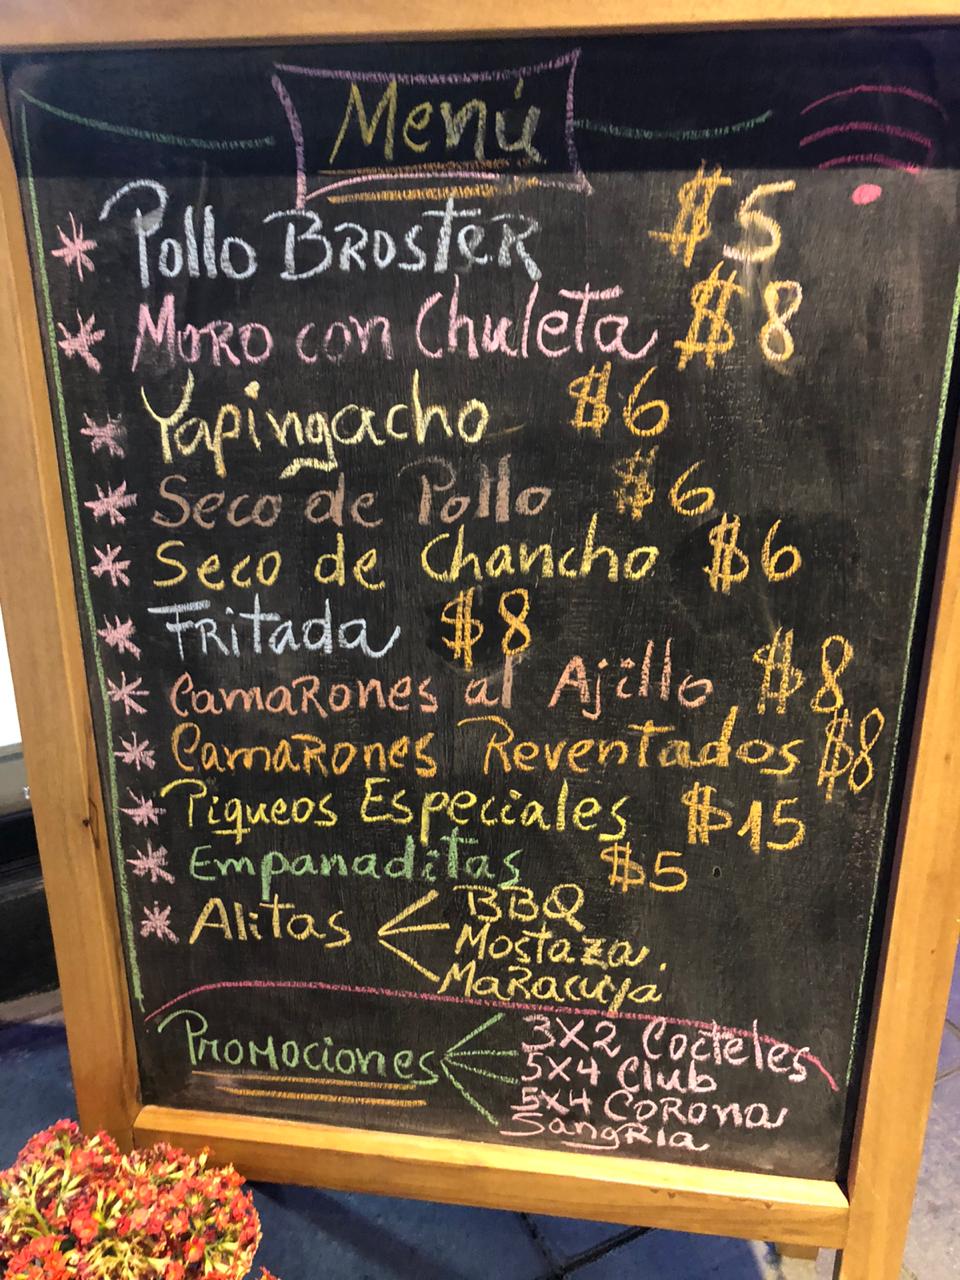 Menú
* Pollo Broster $5
* Moro con Chuleta $8
* Yapingacho $6
* Seco de Pollo $6
* Seco de Chancho $6
* Fritada $8
* Camarones al Ajillo $8
* Camarones Reventados $8
* Piqueos Especiales $15
* Empanaditas $5
* Alitas
BBQ
Mostaza.
Maracuya
Promociones
3X2 Cocteles
5X4 Club
5X4 Corona
Sangria